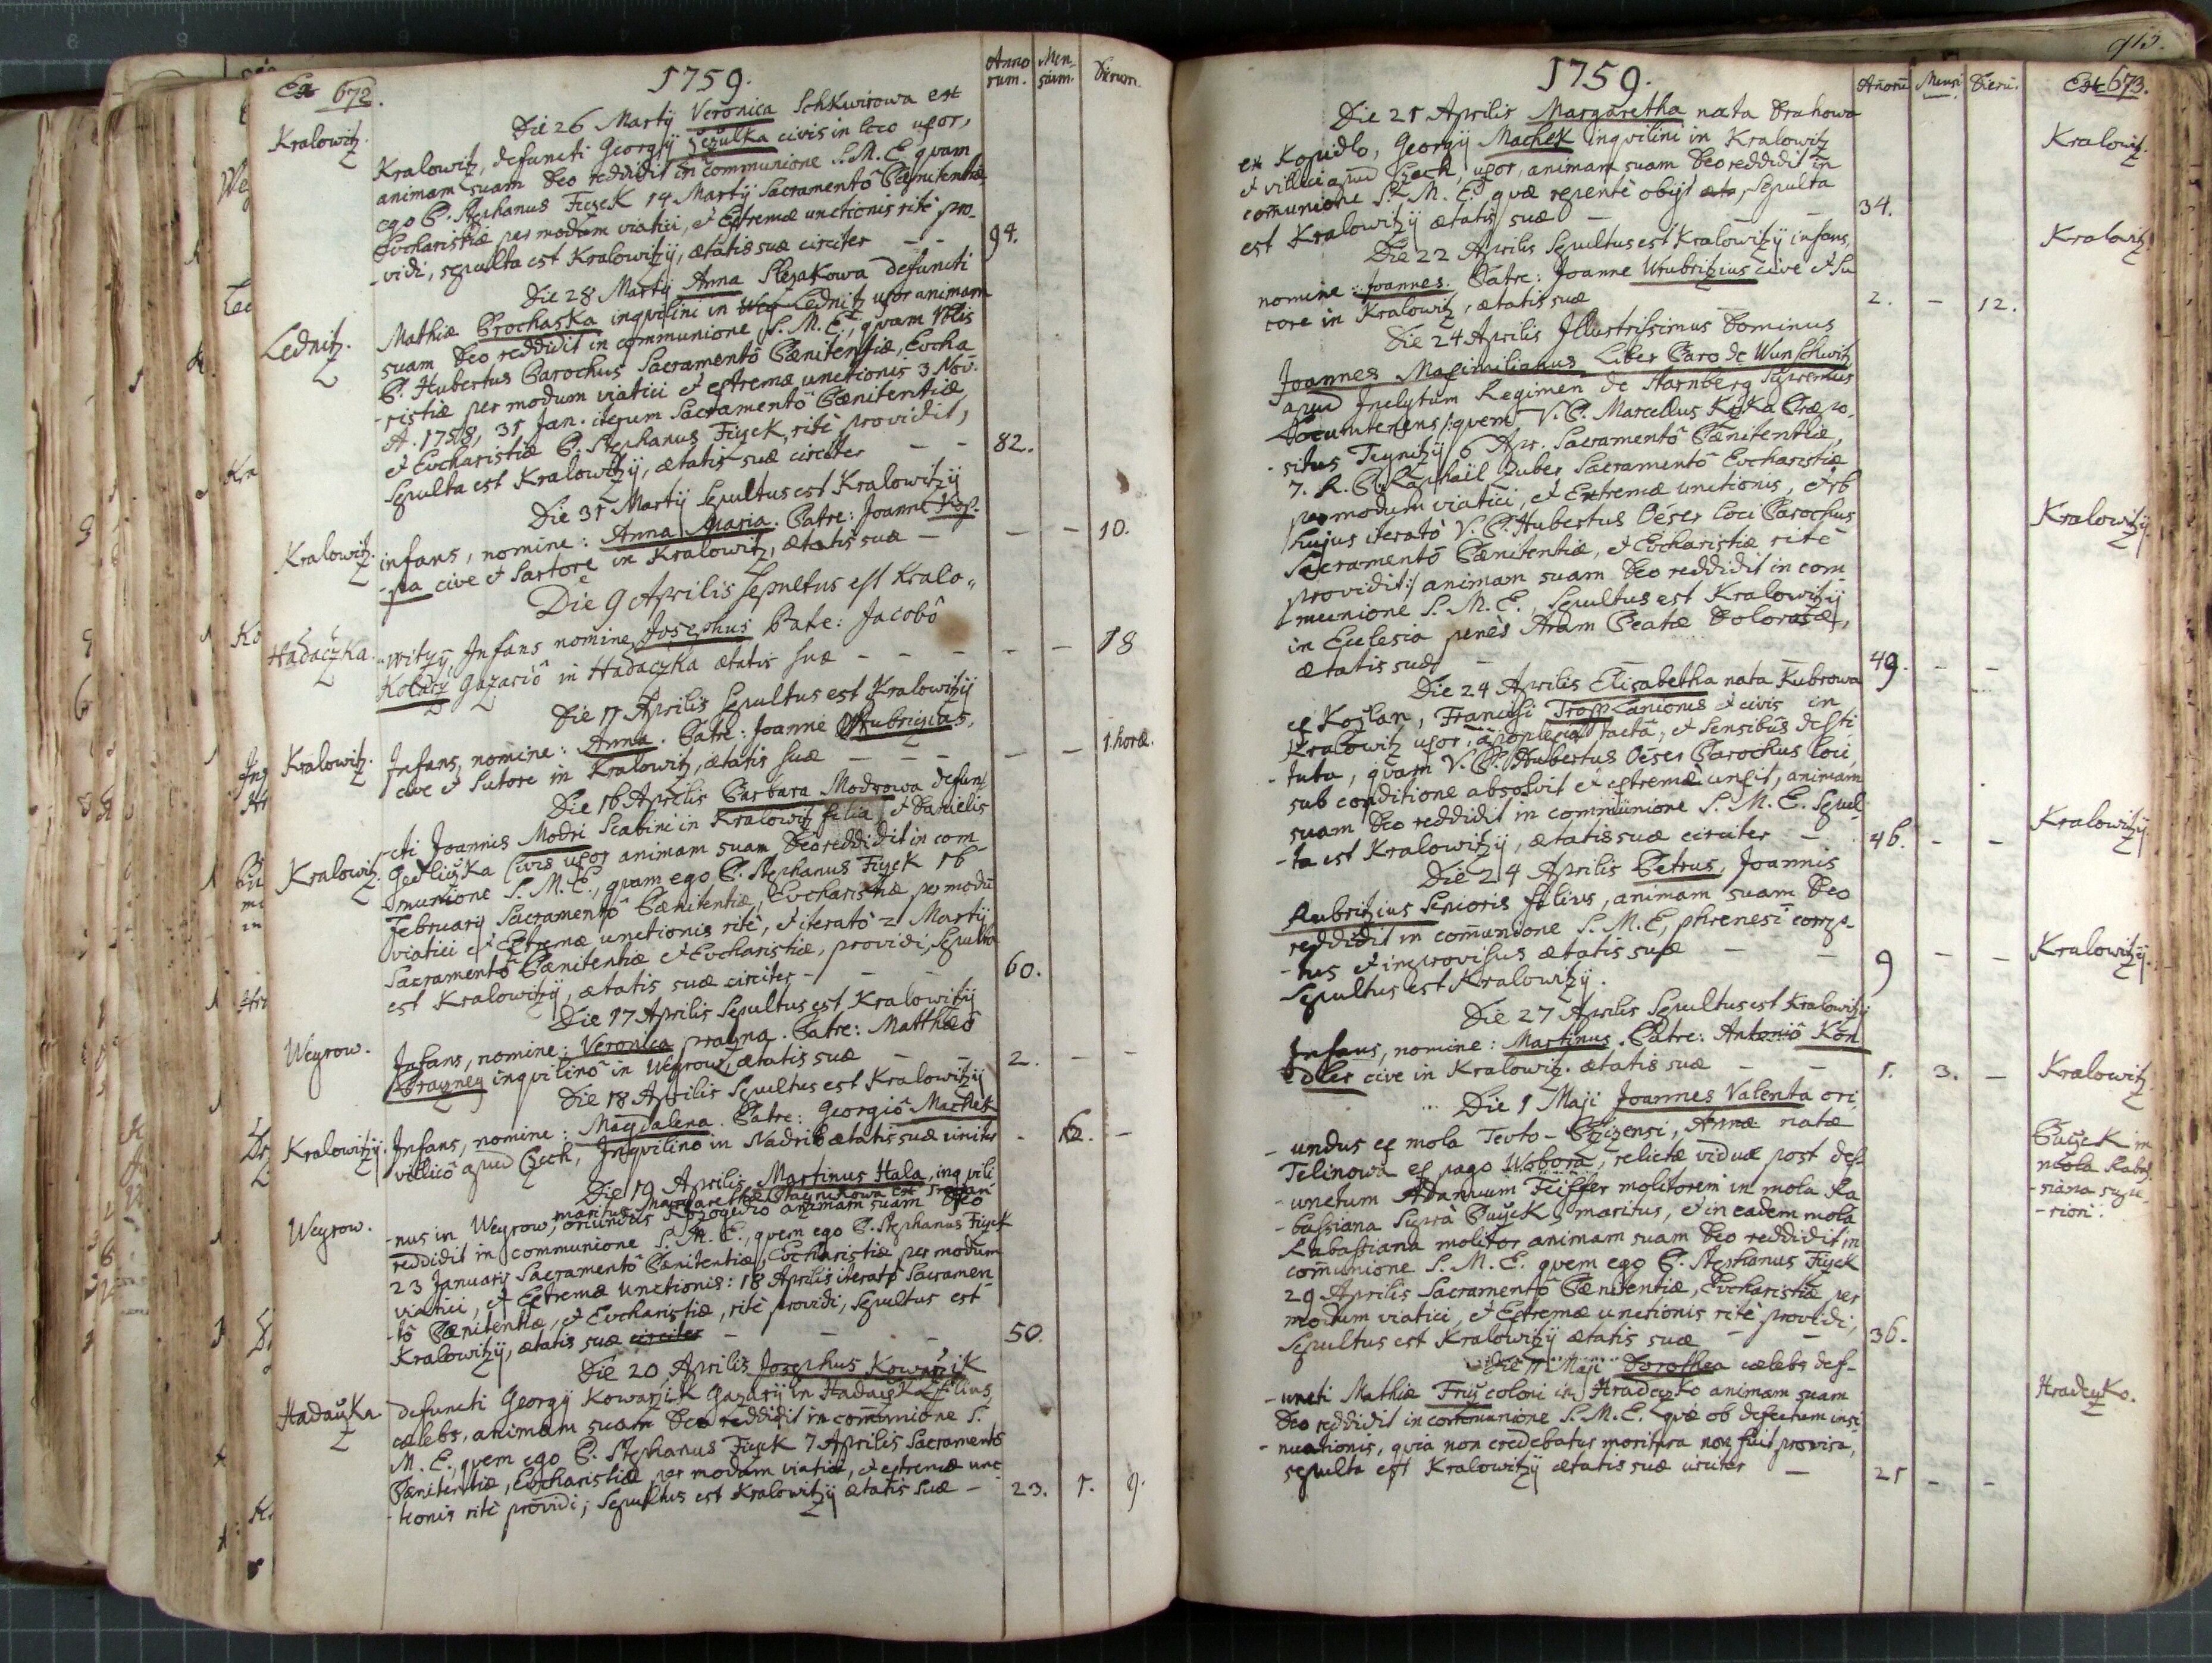 Ex 672.
1759.
Anno
rum.
Men
sium.
Dierum.
Kralowitz.
Die 26 Martÿ Veronica Schkwirowa est
Kralowitz, defuncti Georgÿ civis in loco uxor,
animam suam Deo reddidit in communione S. M. E. qvam
ego P. Stephanus Ficzek 14 Martÿ Sacramentô Pœnitentiæ
Evcharistiæ per modum viatici, et Extremæ unctionis ritè pro-
-vidi, sepulta est Kralowitzÿ, ætatis suæ circiter - - 94.
Lednitz.
Die 28 Martÿ Anna Slezakowa defuncti
Mathiæ Prochaska inqvilini in Lednitz uxor animam
suam Deo reddidit in communione S. M. E., qvam
P. Hubertus Parochus Sacramentô Pœnitentiæ, Evcha
-ristiæ per modum viatici et extremæ unctionis 3 Nov.
A. 1758, 31 Jan. iterum Sacramentô Pœnitentiæ,
et Evcharistiæ P. Stephanus Ficzek, ritè providit,
Sepulta est Kralowitzÿ, ætatis suæ circiter - - 82.
Kralowitz.
Die 31 Martÿ Sepultus est Kralowitzÿ
infans, nomine: Anna Maria. Patre: Joanne Kop-
-pa cive et Sartore in Kralowitz, ætatis suæ - - - 10.
Hadaczka.
Die 9 Aprilis sepultus est Kralo„
„witzÿ, Infans nomine Josephus Pate: Jacobô
Kolarz Gazariô in Hadaczka ætatis suæ - - - - - 18
Kralowitz.
Die 17 Aprilis Sepultus est Kralowitzÿ
Infans, nomine: Anna. Patre: Joanne
cive et Sutore in Kralowitz, ætatis suæ - - - - - 1. horæ.
Kralowitz.
Die 16 Aprilis Barbara Modrowa defun
cti Joannis Modri Scabini in Kralowitz filia, et Danielis
civis uxor animam suam Deo reddidit in com-
munione S. M. E., qvam ego P. Stephanus Ficzek 16
Februarÿ Sacramentô Pœnitentiæ, Evcharistiæ per modũ
viatici et Extremæ unctionis ritè, et iteratò 2 Martÿ
Sacramentô Pœnitentiæ et Evcharistiæ, providi, Sepulta
est Kralowitzÿ, ætatis suæ circiter - - - 60.
Weyrow.
Die 17 Aprilis Sepultus est Kralowitzÿ
Infans, nomine: Veronica Patre: Matthæô
inqvilinô in Weyrow, ætatis suæ - - 2. - -
Kralowitzÿ.
Die 18 Aprilis Sepultus est Kralowitzÿ
Infans, nomine: Magdalena. Patre: Georgiô Machek
villicô apud Czech, Inqvilino in Nadrib ætatis suæ - 12. -
Weyrow.
Die 19 Aprilis Martinus Hala, inqvili
maritus Margarethæ
-nus in Weyrow, oriundus animam suam Deo
reddidit in communione S. M. E., qvem ego P. Stephanus Ficzek
23 Januarÿ Sacramentô Pœnitentiæ, Evcharistiæ per modum
viatici, et Extremæ Unctionis: 18 Aprilis iteratò Sacramen
-tô Pœnitentiæ, et Evcharistiæ, ritè providi, Sepultus est
Kralowitzÿ, ætatis suæ circiter - - - 50.
Hadaczka
Die 20 Aprilis Josephus Kowarzik
defuncti Georgÿ Kowarzik Gazarÿ in Hadaczka Filius
cælebs, animam suam Deo reddidit in communione S.
M. E., qvem ego P. Stephanus Ficzek 7 Aprilis Sacramentô
Pœnitentiæ, Evcharistiæ per modum viatici, et extremæ unc
-tionis ritè providi; Sepultus est Kralowitzÿ ætatis suæ - 23. 1. 9.
913.
1759.
Añorũ
Mensi
Dierũ.
Ext 673.
Kralowitz.
Die 21 Aprilis Margaretha nata Drahowa
ex Kopidlo, Georgÿ Machek inqvilini in Kralowitz
et villici apud Czech, uxor, animam suam Deo reddidit in
com̃unione S. M. E. qvæ repentè obÿt Sepulta
est Kralowitzÿ ætatis suæ - - 34.
Kralowitz.
Die 22 Aprilis Sepultus est Kralowitzÿ infans,
nomine: Joannes. Patre: Joanne cive et Su
tore in Kralowitz, ætatis suæ 2. - 12.
Kralowitzÿ.
Die 24 Aprilis Jllustrissimus Dominus
Joannes Maximilianus Liber Baro de Wunschwitz
apud Jnclytum Regimen de Starnberg Supremus
Locumtenens /:qvem V. P. Marcellus Præpo-
-situs 6 Apr. Sacramentô Pœnitentiæ,
7. R. P. Raphaël Zuber Sacramentô Evcharistiæ
per modum viatici, et Extremæ unctionis, et 16
hujus iteratò V. P. Hubertus Oëser loci Parochus
Sacramentô Pœnitentiæ, et Evcharistiæ ritè
providit:/ animam suam Deo reddidit in com
munione S. M. E., Sepultus est Kralowitzÿ
in Ecclesia penès Aram Beatæ Dolorosæ,
ætatis suæ - - - 49. - -
Kralowitzÿ
Die 24 Aprilis Elisabetha nata Kubrowa
ex Kozlan, Francisci Lanionis et civis in
Kralowitz uxor, apoplexia tacta, et sensibus desti
-tuta, qvam V. P. Hubertus Oëser Parochus loci,
sub conditione absolvit et extremæ unxit, animam
suam Deo reddidit in communione S. M. E. Sepul-
-ta est Kralowitzÿ, ætatis suæ circiter - 46. - -
Kralowitzÿ.
Die 24 Aprilis Petrus, Joannis
Senioris filius, animam suam Deo
reddidit in com̃unione S. M. E, phrenesi correp-
-tus et improvisus ætatis suæ - - 9 - -
Sepultus est Kralowitzÿ.
Kralowitz.
Die 27 Aprilis Sepultus est Kralowitzÿ
Infans, nomine: Martinus. Patre: Antoniô Kon
dler cive in Kralowitz. ætatis suæ - - 1. 3. -
Die 1 Maji Joannes Valenta ori
-undus ex mola Annæ natæ
Telinowa ex pago Wobora, relictæ viduæ post def-
-unctum Adamum Feiffer molitorem in mola Ra
-bassiana Suprà maritus, et in eadem mola
Rabassiana molitor animam suam Deo reddidit in
com̃unione S. M. E. qvem ego P. Stephanus Ficzek
29 Aprilis Sacramentô Pœnitentiæ, Evcharistiæ per
modum viatici, et Extremæ unctionis ritè providi,
Sepultus est Kralowitzÿ ætatis suæ - - 36.
Hradczko.
Die 11 Maji Dorothea cælebs def-
-uncti Mathiæ coloni in Hradczko animam suam
Deo reddidit in communione S. M. E. qvæ ob defectum insi
-nuationis, qvia non credebatur moritura non fuit provisa,
sepulta est Kralowitzÿ ætatis suæ circiter - 21 - -